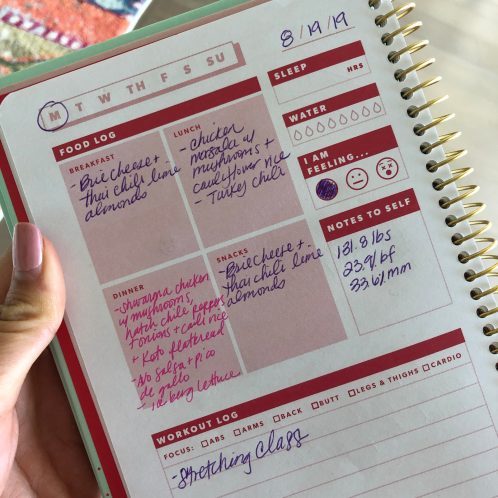 8/19/19
M T W TH F S SU
SLEEP
HRS
WATER
I AM
FEELING...
NOTES TO SELF
131.8 lbs
23.9% bf
33.6% mm
FOOD LOG
BREAKFAST
- Brie cheese +
thai chili lime
almonds
LUNCH
- Chicken
marsala w/
mushrooms +
cauliflower rice
- Turkey chili
DINNER
- shwarma chicken
w/ mushrooms,
hatch chile peppers
+ onions + cauli rice
+ Keto flatbread
salsa + pico
de gallo
iceberg lettuce
SNACKS
- Brie cheese +
thai chili lime
almonds
WORKOUT LOG
FOCUS: ABS ARMS BACK BUTT LEGS & THIGHS CARDIO
- Stretching Class